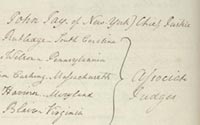 John Jay, of New York, Chief Justice
Rutledge – South Carolina
Wilson – Pennsylvania
Cushing, Massachusetts
Harrison, Maryland
Blair – Virginia
Associate
Judges